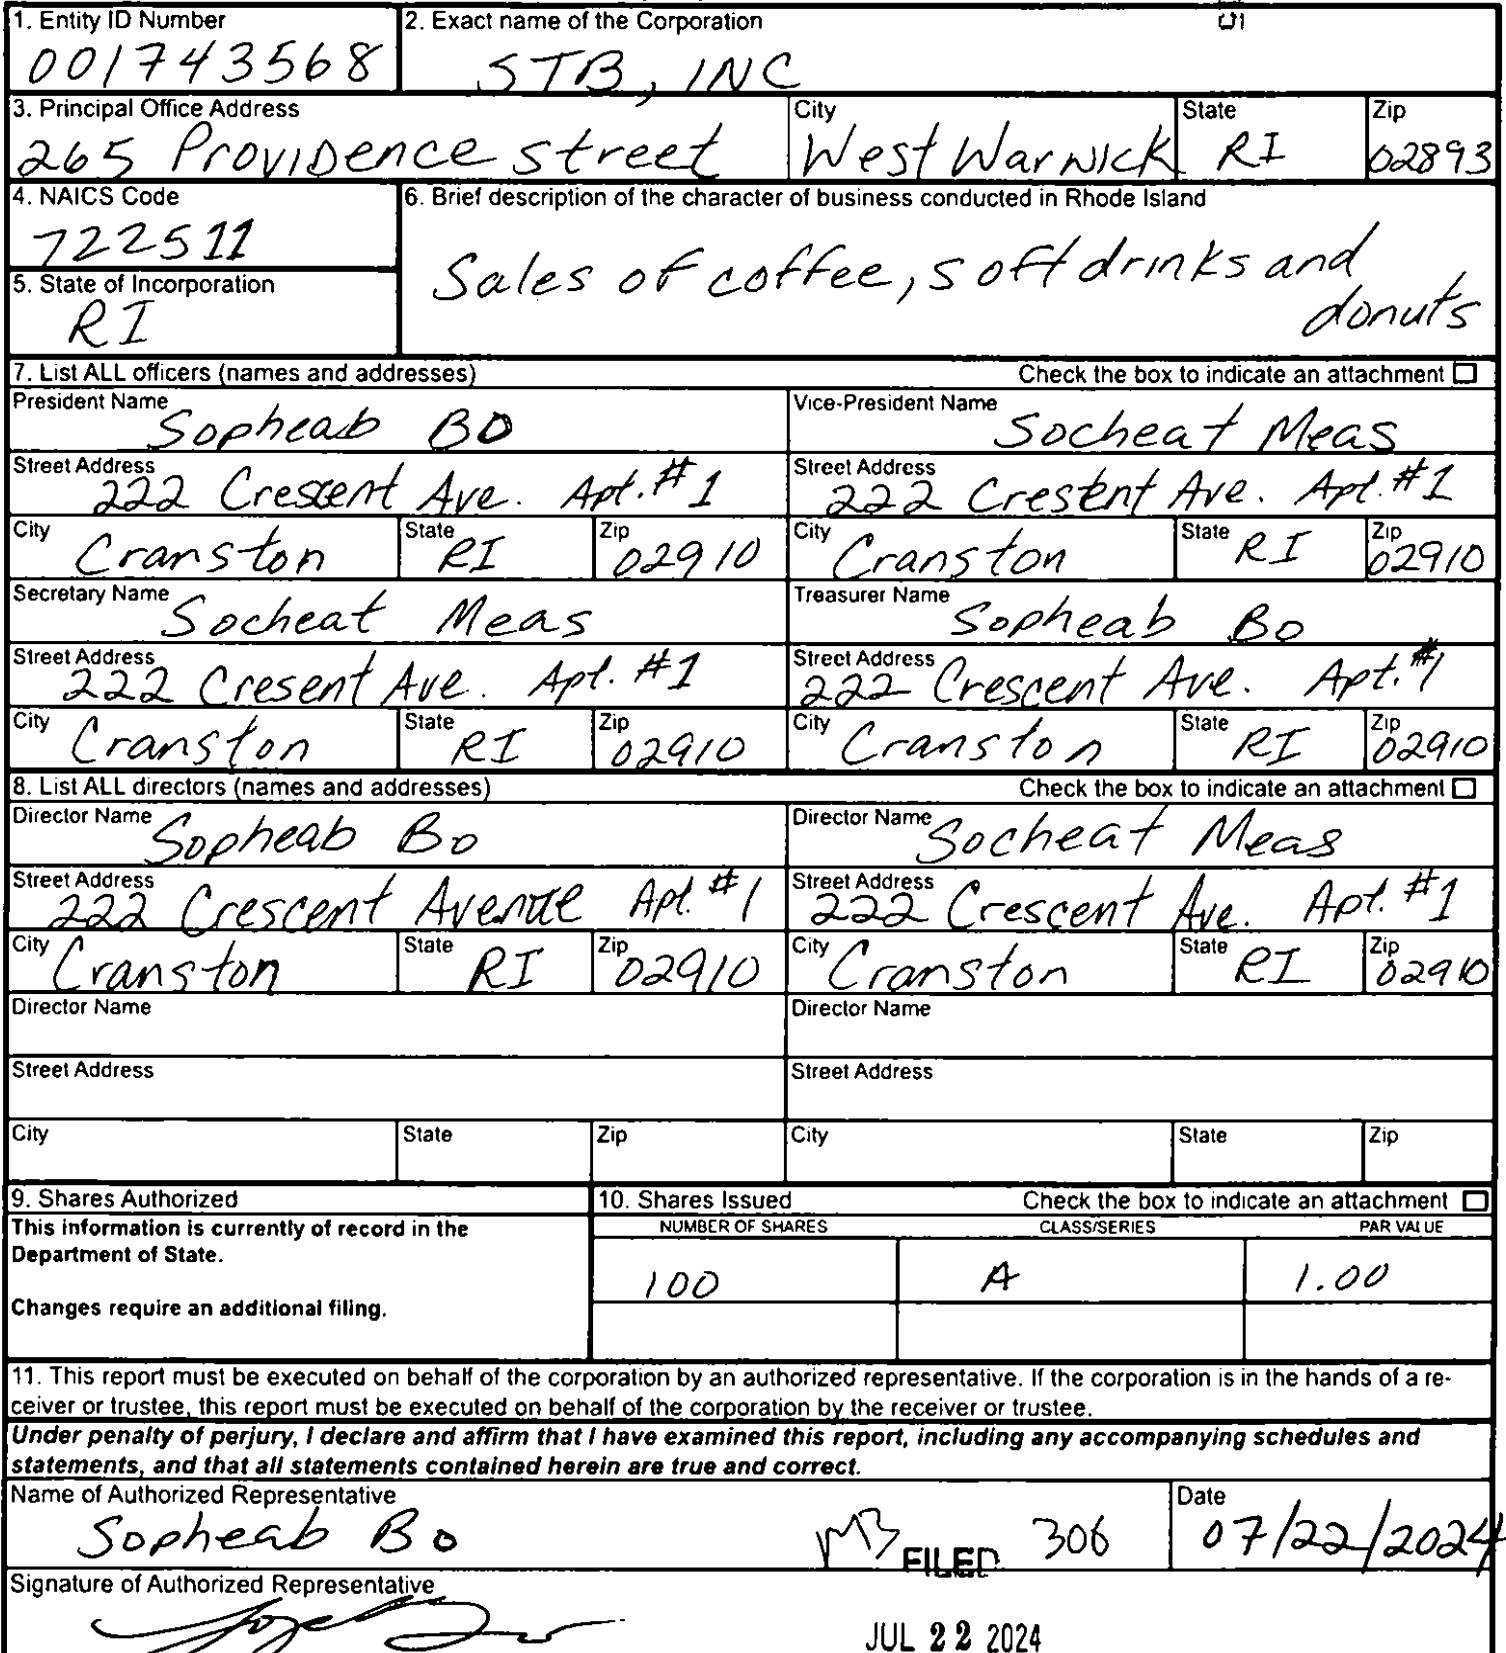 1. Entity ID Number
001743568
2. Exact name of the Corporation
STB, INC
3. Principal Office Address
265 Providence street
City
West Warwick
State
RI
Zip
02893
4. NAICS Code
722511
5. State of Incorporation
RI
6. Brief description of the character of business conducted in Rhode Island
Sales of coffee, soft drinks and
donuts
7. List ALL officers (names and addresses)
Check the box to indicate an attachment
President Name
Sopheab Bo
Vice-President Name
Socheat Meas
Street Address
222 Crescent Ave. Apt. #1
Street Address
222 Cresent Ave. Apt. #1
City
Cranston
State
RI
Zip
02910
City
Cranston
State
RI
Zip
02910
Secretary Name
Socheat Meas
Treasurer Name
Sopheab Bo
Street Address
222 Cresent Ave. Apt. #1
Street Address
222 Crescent Ave. Apt. #1
City
Cranston
State
RI
Zip
02910
City
Cranston
State
RI
Zip
02910
8. List ALL directors (names and addresses)
Check the box to indicate an attachment
Director Name
Sopheab Bo
Director Name
Socheat Meas
Street Address
222 Crescent Avenue Apt. #1
Street Address
222 Crescent Ave. Apt. #1
City
Cranston
State
RI
Zip
02910
City
Cranston
State
RI
Zip
02910
Director Name
Director Name
Street Address
Street Address
City
State
Zip
City
State
Zip
9. Shares Authorized
This information is currently of record in the
Department of State.
Changes require an additional filing.
10. Shares Issued
Check the box to indicate an attachment
NUMBER OF SHARES
CLASS/SERIES
PAR VALUE
100
A
1.00
11. This report must be executed on behalf of the corporation by an authorized representative. If the corporation is in the hands of a re-
ceiver or trustee, this report must be executed on behalf of the corporation by the receiver or trustee.
Under penalty of perjury, I declare and affirm that I have examined this report, including any accompanying schedules and
statements, and that all statements contained herein are true and correct.
Name of Authorized Representative
Sopheab Bo
FILED
306
Date
07/22/2024
Signature of Authorized Representative
JUL 22 2024